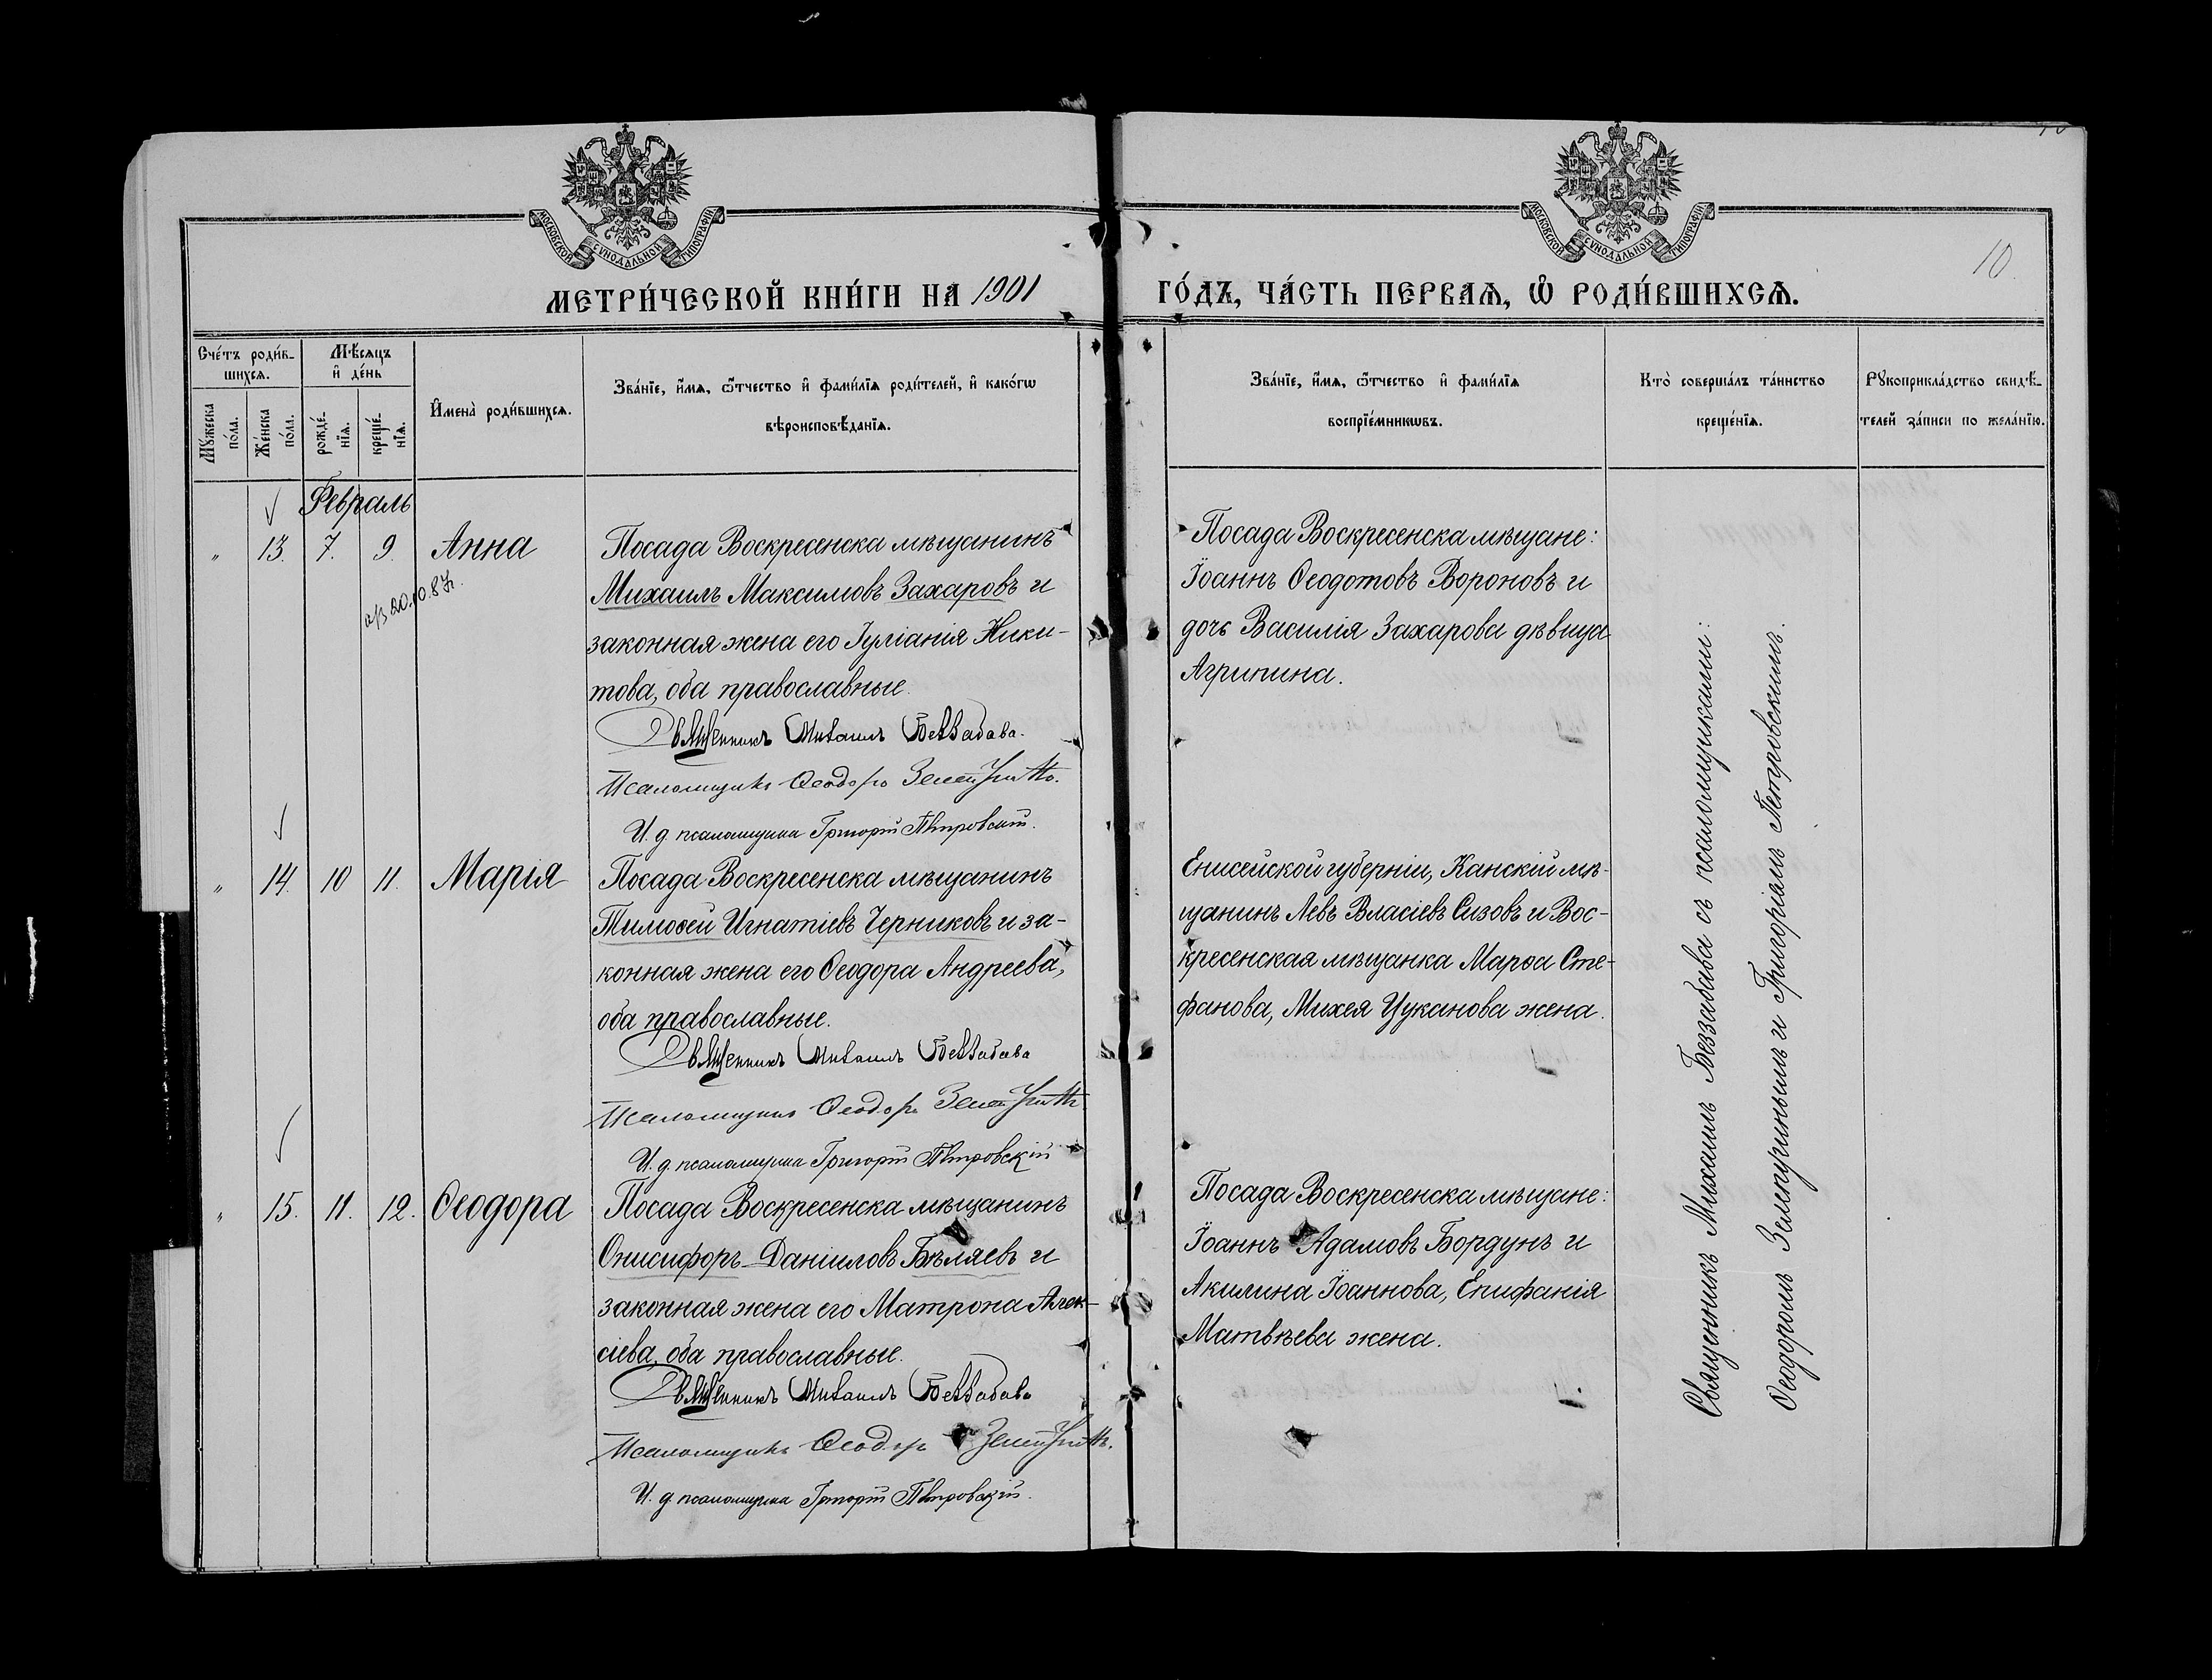 МОСКОВСКОЙ СѴНОДАЛЬНОЙ ТИПОГРАФІИ
МОСКОВСКОЙ СѴНОДАЛЬНОЙ ТИПОГРАФІИ
10
МЕТРИ́ЧЕСКОЙ КНИ́ГИ НА 1901
ГО́ДЪ, ЧА́СТЬ ПЕРВАѦ, Ѽ РОДИ́ВШИХСѦ.
Сче́тъ роди́в-
шихсѧ.
Мꙋ́жеска
по́ла.
Же́нска
по́ла.
Мѣ́сѧцъ
и҆ де́нь
рожде́-
нїѧ.
креще́-
нїѧ.
И҆мена̀ роди́вшихсѧ.
Зва́нїе, и҆́мѧ, ѻ҆́тчество и҆ фами́лїѧ роди́телей, и҆ како́гѡ
вѣроисповѣ́данїѧ.
Зва́нїе, и҆́мѧ, ѻ҆́тчество и҆ фами́лїѧ
воспрїе́мникѡвъ.
Кто̀ соверша́лъ та́инство
креще́нїѧ.
Рꙋкоприкла́дство свидѣ́-
телей за́писи по жела́нїю.
Февраль
" 13. 7. 9. Анна
Посада Воскресенска мѣщанинъ
Михаилъ Максимовъ Захаровъ и
законная жена его Іуліанія Ники-
това, оба православные.
Священникъ Михаилъ Беззабава.
Псаломщикъ Ѳеодоръ
И. д. псаломщика Григорій Петровскій.
20.10.87г.
Посада Воскресенска мѣщане:
Іоаннъ Ѳеодотовъ Вороновъ и
дочь Василія Захарова дѣвица
Агрипина.
" 14. 10 11. Марія
Посада Воскресенска мѣщанинъ
Тимоѳей Игнатіевъ Черниковъ и за-
конная жена его Ѳеодора Андреева,
оба православные.
Священникъ Михаилъ Беззабава
Псаломщикъ Ѳеодоръ
И. д. псаломщика Григорій Петровскій
Енисейской губерніи, Канскій мѣ-
щанинъ Левъ Власіевъ Сизовъ и Вос-
кресенская мѣщанка Марѳа Сте-
фанова, Михея Цуканова жена.
" 15. 11. 12. Ѳеодора
Посада Воскресенска мѣщанинъ
Онисифоръ Даніиловъ Бѣляевъ и
законная жена его Матрона Алек-
сіева, оба православные.
Священникъ Михаилъ Беззабава
Псаломщикъ Ѳеодоръ
И. д. псаломщика Григорій Петровскій.
Посада Воскресенска мѣщане:
Іоаннъ Адамовъ Бордунъ и
Акилина Іоаннова, Епифанія
Матвѣева жена.
Священникъ Михаилъ Беззабава съ псаломщиками:
Ѳеодоромъ и Григоріемъ Петровскимъ.